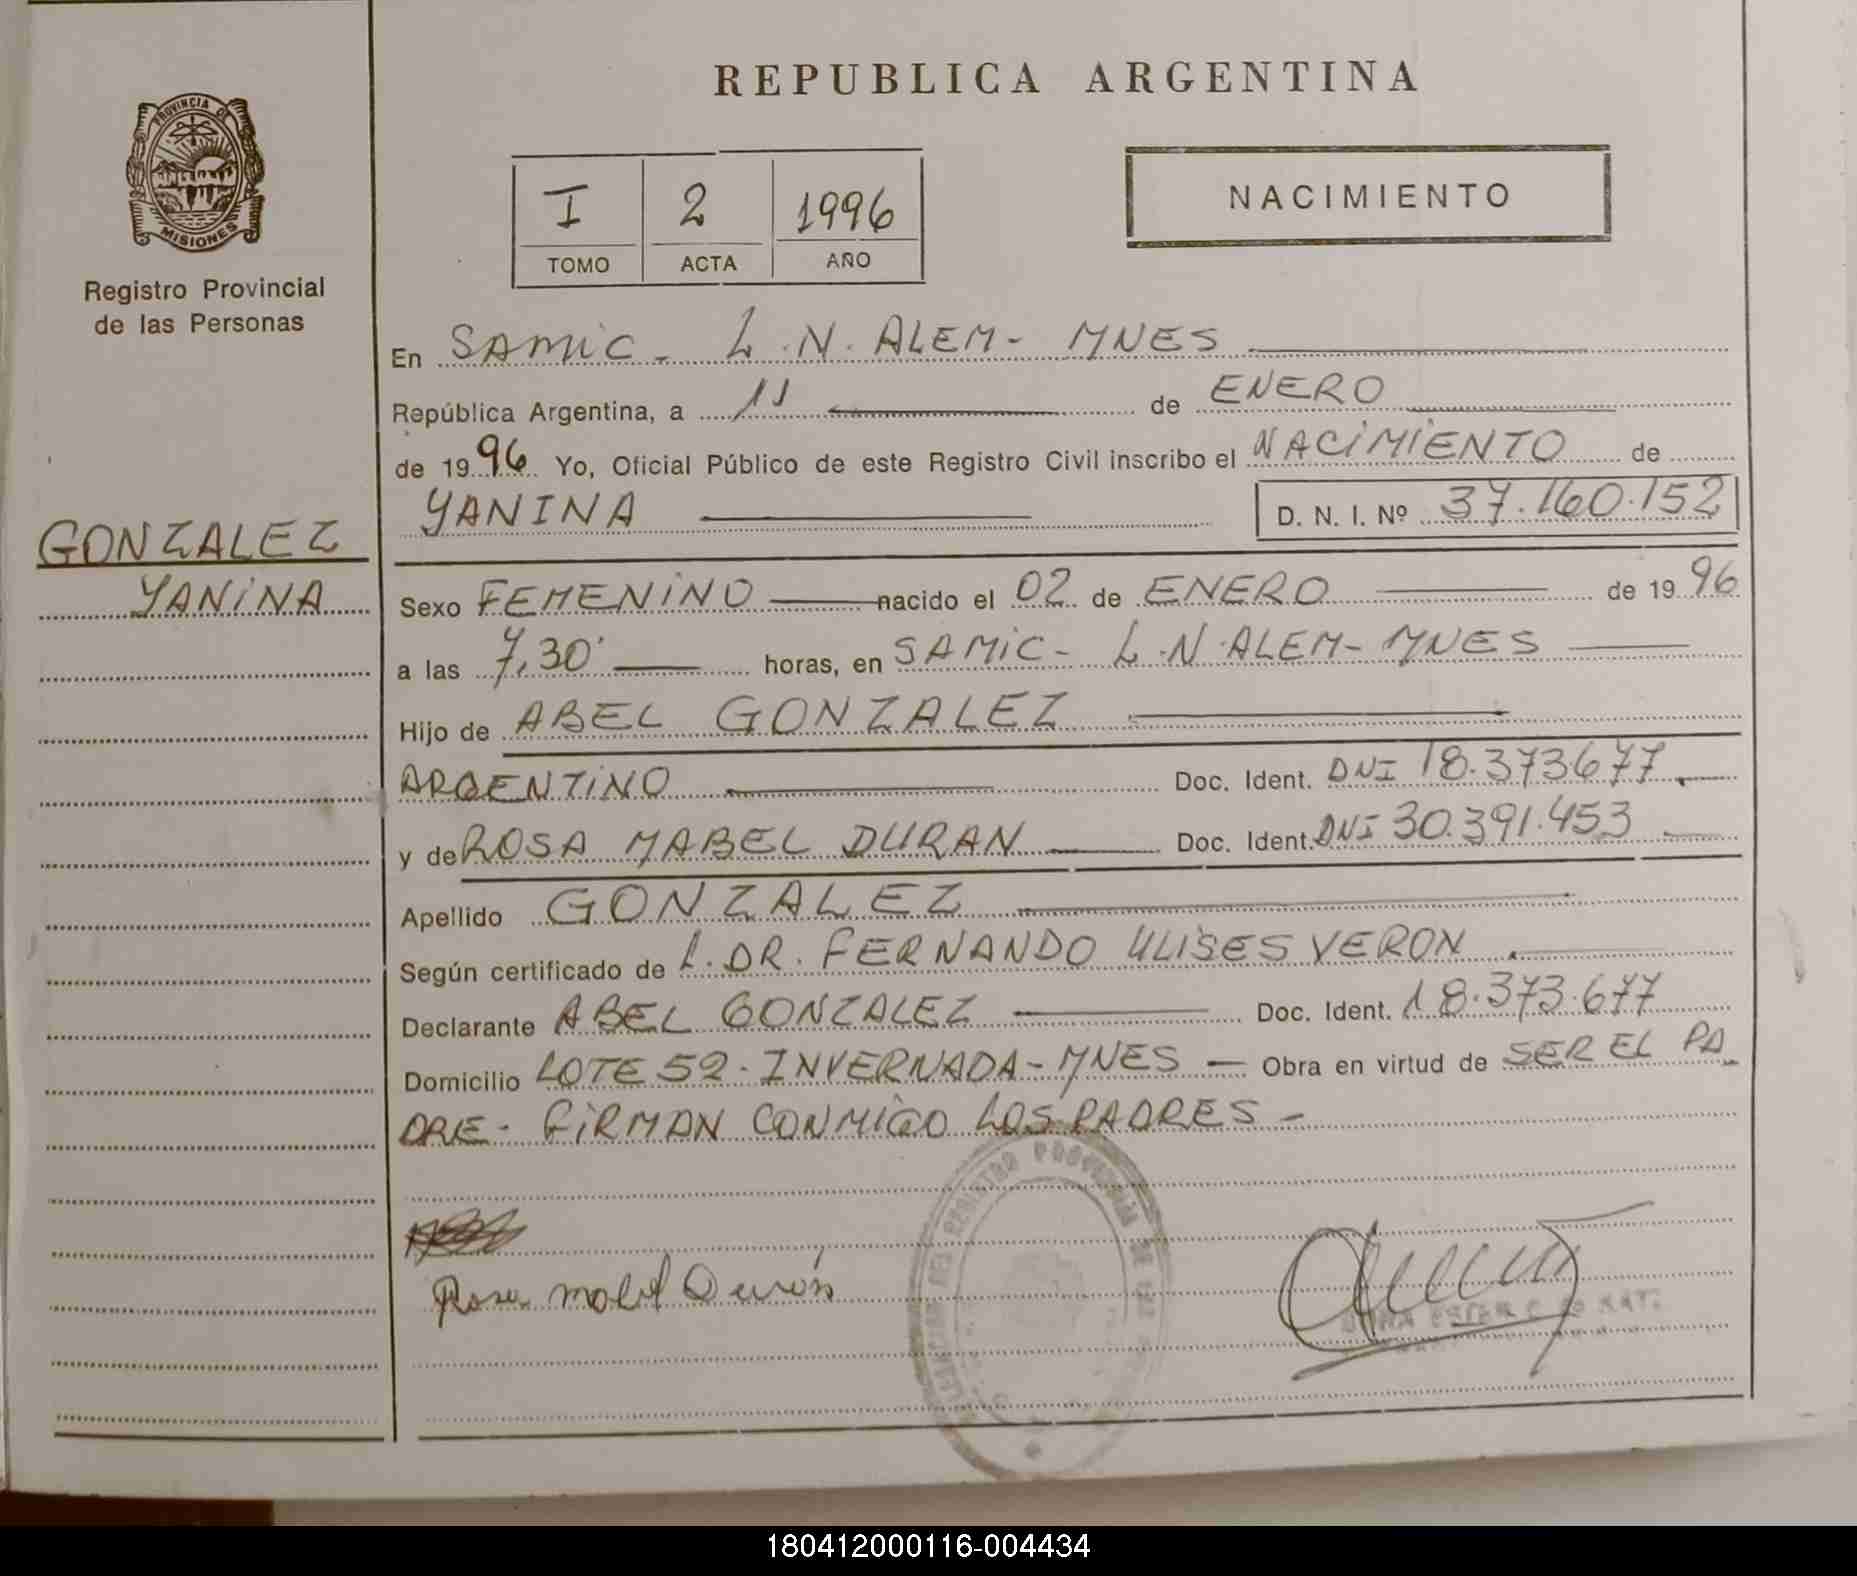 REPUBLICA ARGENTINA
PROVINCIA DE
MISIONES
Registro Provincial
de las Personas
I 2 1996
TOMO ACTA AÑO
NACIMIENTO
En SAMIC - L.N. ALEM - MNES
República Argentina, a 11 de ENERO
de 1996 Yo, Oficial Público de este Registro Civil inscribo el NACIMIENTO de
YANINA D. N. I. Nº 37.160.152
GONZALEZ
YANINA
Sexo FEMENINO nacido el 02 de ENERO de 1996
a las 7,30' horas, en SAMIC - L.N. ALEM - MNES
Hijo de ABEL GONZALEZ
ARGENTINO Doc. Ident. DNI 18.373677
y de ROSA MABEL DURAN Doc. Ident. DNI 30.391.453
Apellido GONZALEZ
Según certificado de L. DR. FERNANDO ULISES VERON
Declarante ABEL GONZALEZ Doc. Ident. 18.373.677
Domicilio LOTE 52 - INVERNADA - MNES - Obra en virtud de SER EL PA
DRE - FIRMAN CONMIGO LOS PADRES -
REGISTRO PROVINCIAL DE LAS
Rosa mabel Durán
ESTER
180412000116-004434